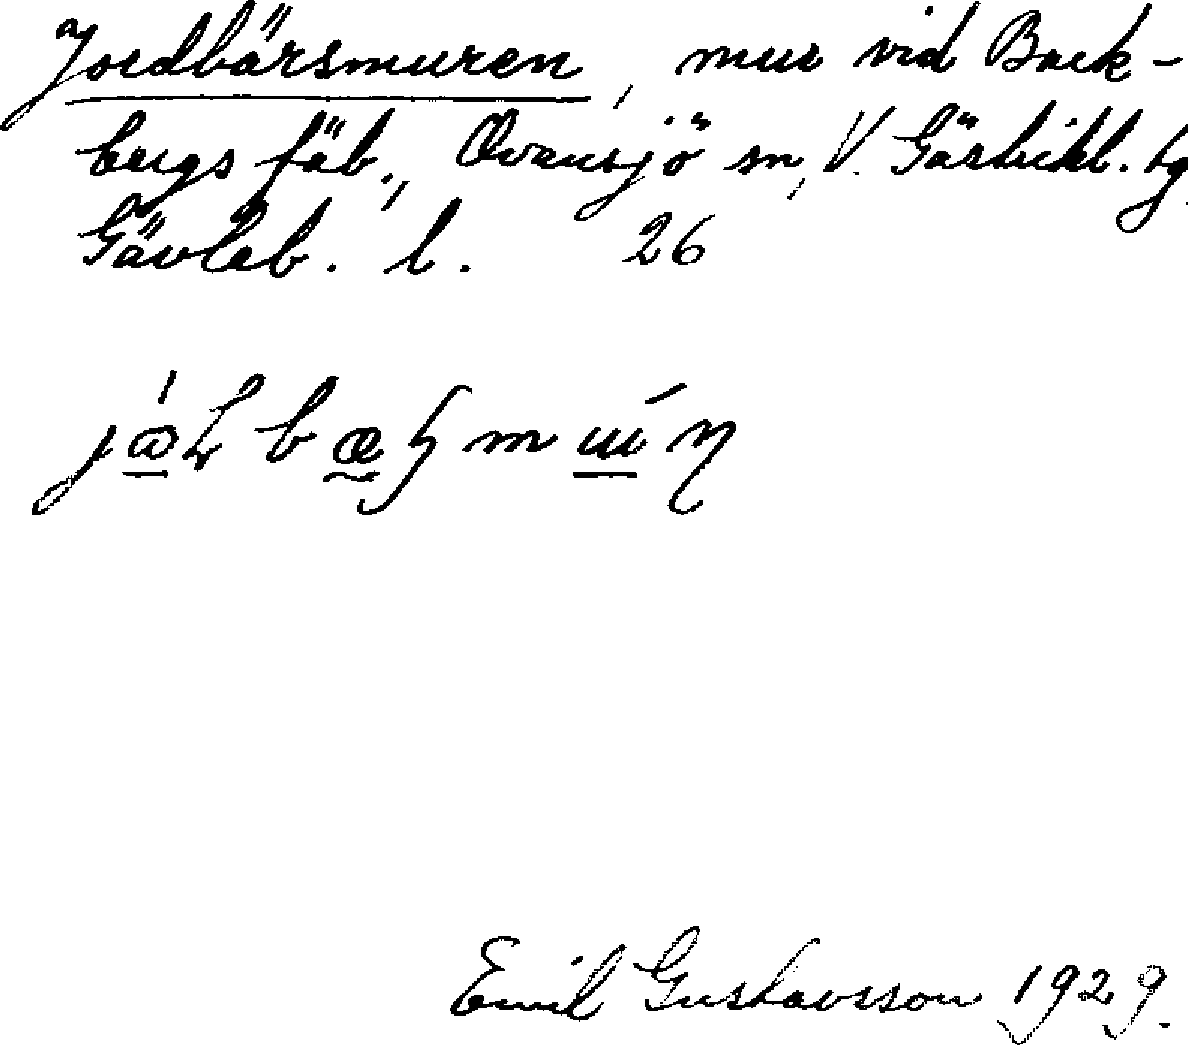 Jordbärsmuren, mur vid Back-
bergs fäb., Ovansjö sn, V. Gästrikl. tg
Gävleb. l. 26
Emil Gustavsson 1929.